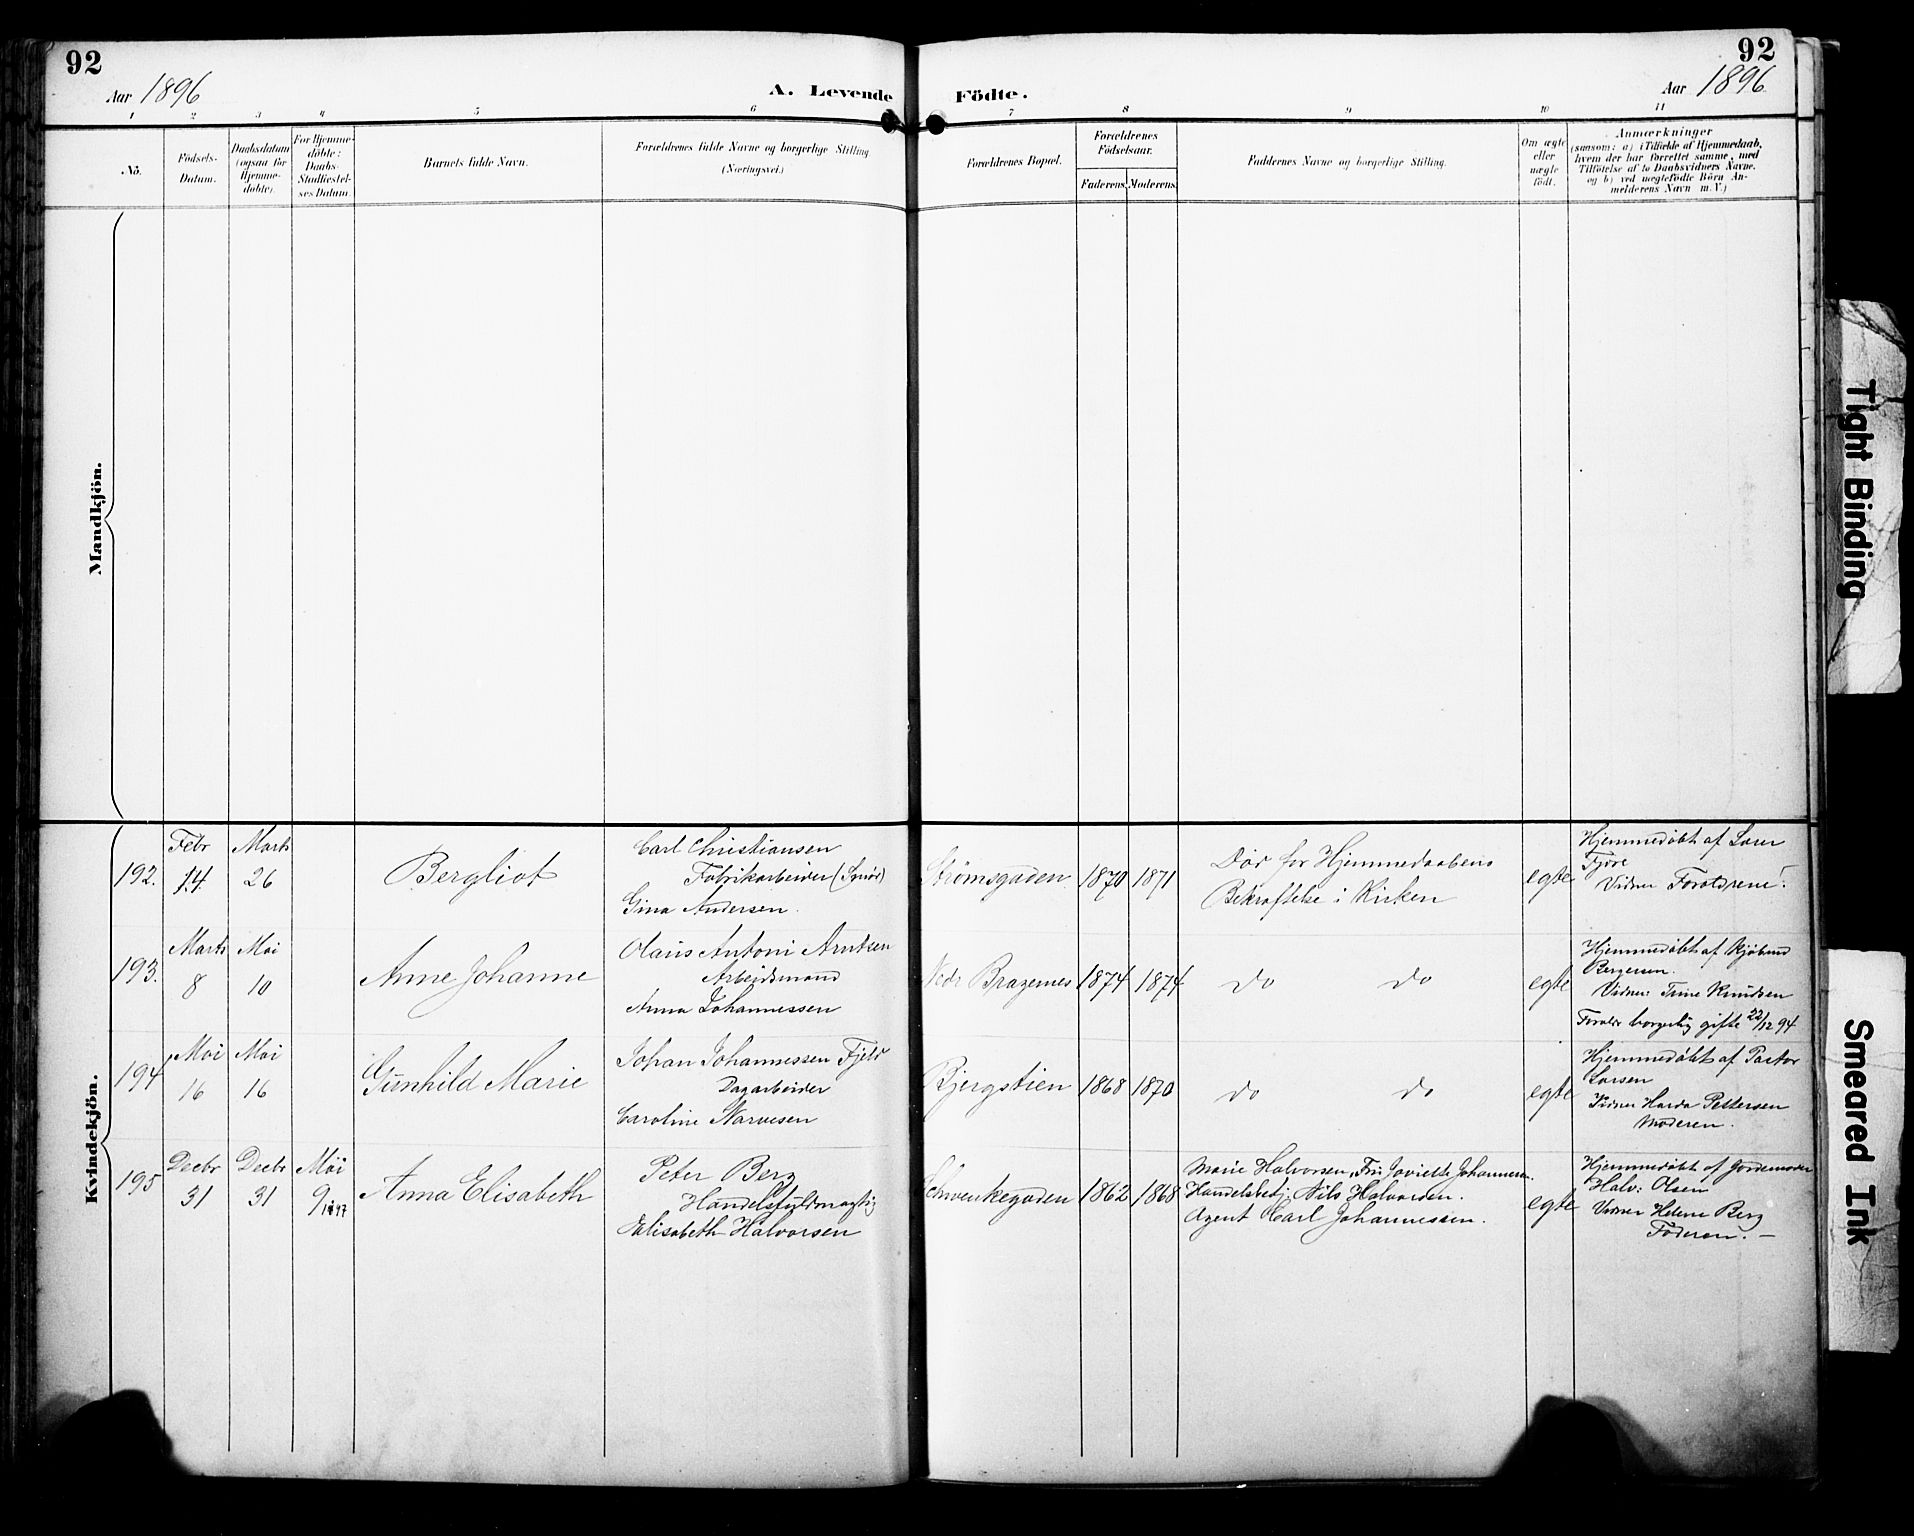 92
Aar 1896
A. Levende
1 2 3 4 5 6
No.
Födsels-
Datum.
Daabsdatum
(ogsaa for
Hjemme-
döbte).
For Hjemme-
döbte:
Daabs-
Stadfæstel-
ses Datum.
Barnets fulde Navn.
Forældrenes fulde Navne og borgerlige Stilling
(Næringsvei.)
Mandkjön.
Kvindekjön.
192.
Febr
14.
Marts
26
Bergliot
Carl Christiansen
Fabrikarbeider
Gina Andersen.
193.
Marts
8
Mai
10
Anne Johanne
Olaus Antoni Arntzen
Arbeidsmand
Anna Johannessen
194
Mai
16
Mai
16
Gunhild Marie
Johan Johannessen Fjeld
Dagarbeider
Caroline Narvesen
195
Decbr
31
Decbr
31
Mai
9/1897
Anna Elisabeth
Peter Berg
Handelsfuldmægtig
Elisabeth Halvorsen
92
Aar 1896
Födte.
7 8 9 10 11
Forældrenes Bopæl.
Forældrenes
Födselsaar.
Faderens. Moderens.
Faddernes Navne og borgerlige Stilling.
Om ægte
eller
uægte
födt.
Anmærkninger
(saasom: a) i Tilfælde af Hjemmedaab,
hvem der har forrettet samme, med
Tilföielse af to Daabsvidners Navne.
og b) ved uægtefödte Börn An-
melderens Navn m. V.)
Strömsgaden
1870 1871
Död før Hjemmedaabens
Bekræftelse i Kirken
egte
Hjemmedöbt af
Vidner Forældrene.
Nedr Bragernes
1874 1874
do do
egte
Hjemmedöbt af
Bergersen.
Vidner: Trine Knudsen
Foræld borgerlig gifte 22/12 94
Bjergstien
1868 1870
do do
egte
Hjemmedöbt af Pastor
Larsen
Vidner Pettersen
Moderen.
Schwenkegaden
1862 1868
Marie Halvorsen, Johannesen.
Handelsbetj. Nils Halvorsen.
Agent Carl Johannessen.
egte
Hjemmedöbt af Jordemoder
Halv: Olsen
Vidner Helene Berg
Faderen. —
Tight Binding
Smeared Ink